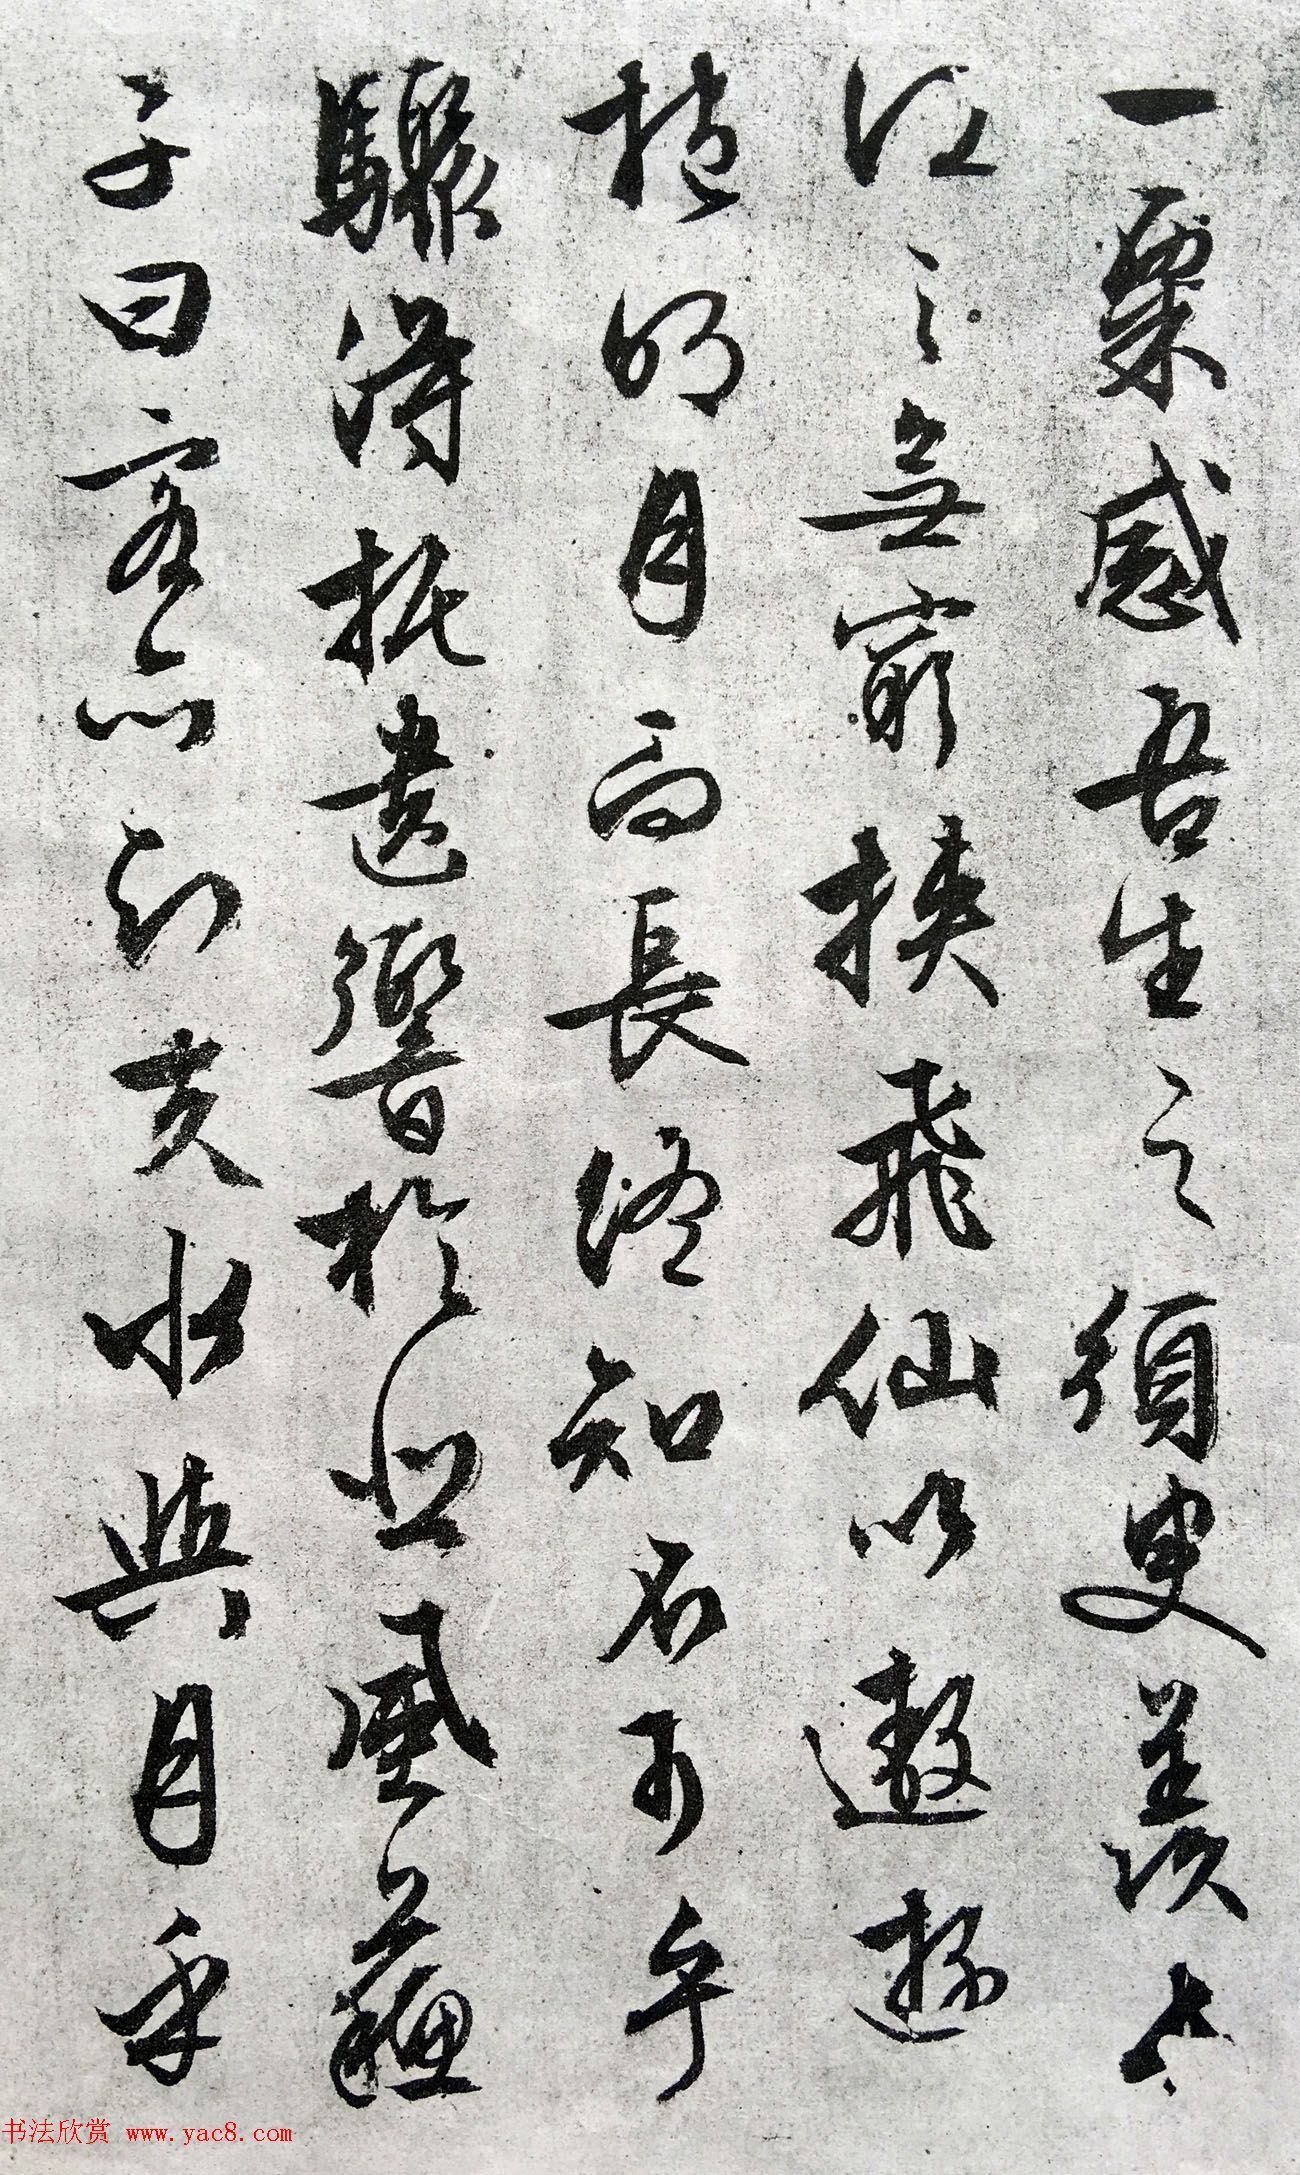 一粟感吾生之須臾羨長
江之無窮挾飛仙以遨遊
抱明月而長終知不可乎
驟得托遺響於悲風蘇
子曰客亦知夫水與月乎
书法欣赏 www.yac8.com